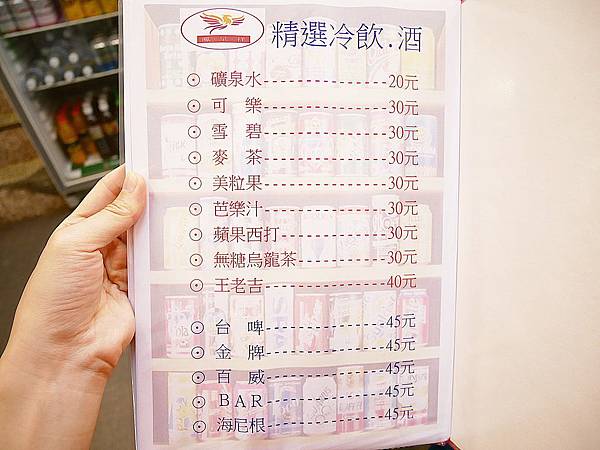 精選冷飲.酒
⊙ 礦泉水----------------20元
⊙ 可　樂----------------30元
⊙ 雪　碧----------------30元
⊙ 麥　茶----------------30元
⊙ 美粒果----------------30元
⊙ 芭樂汁----------------30元
⊙ 蘋果西打-------------30元
⊙ 無糖烏龍茶-----------30元
⊙ 王老吉----------------40元
⊙ 台　啤----------------45元
⊙ 金　牌----------------45元
⊙ 百　威----------------45元
⊙ BAR----------------45元
⊙ 海尼根----------------45元